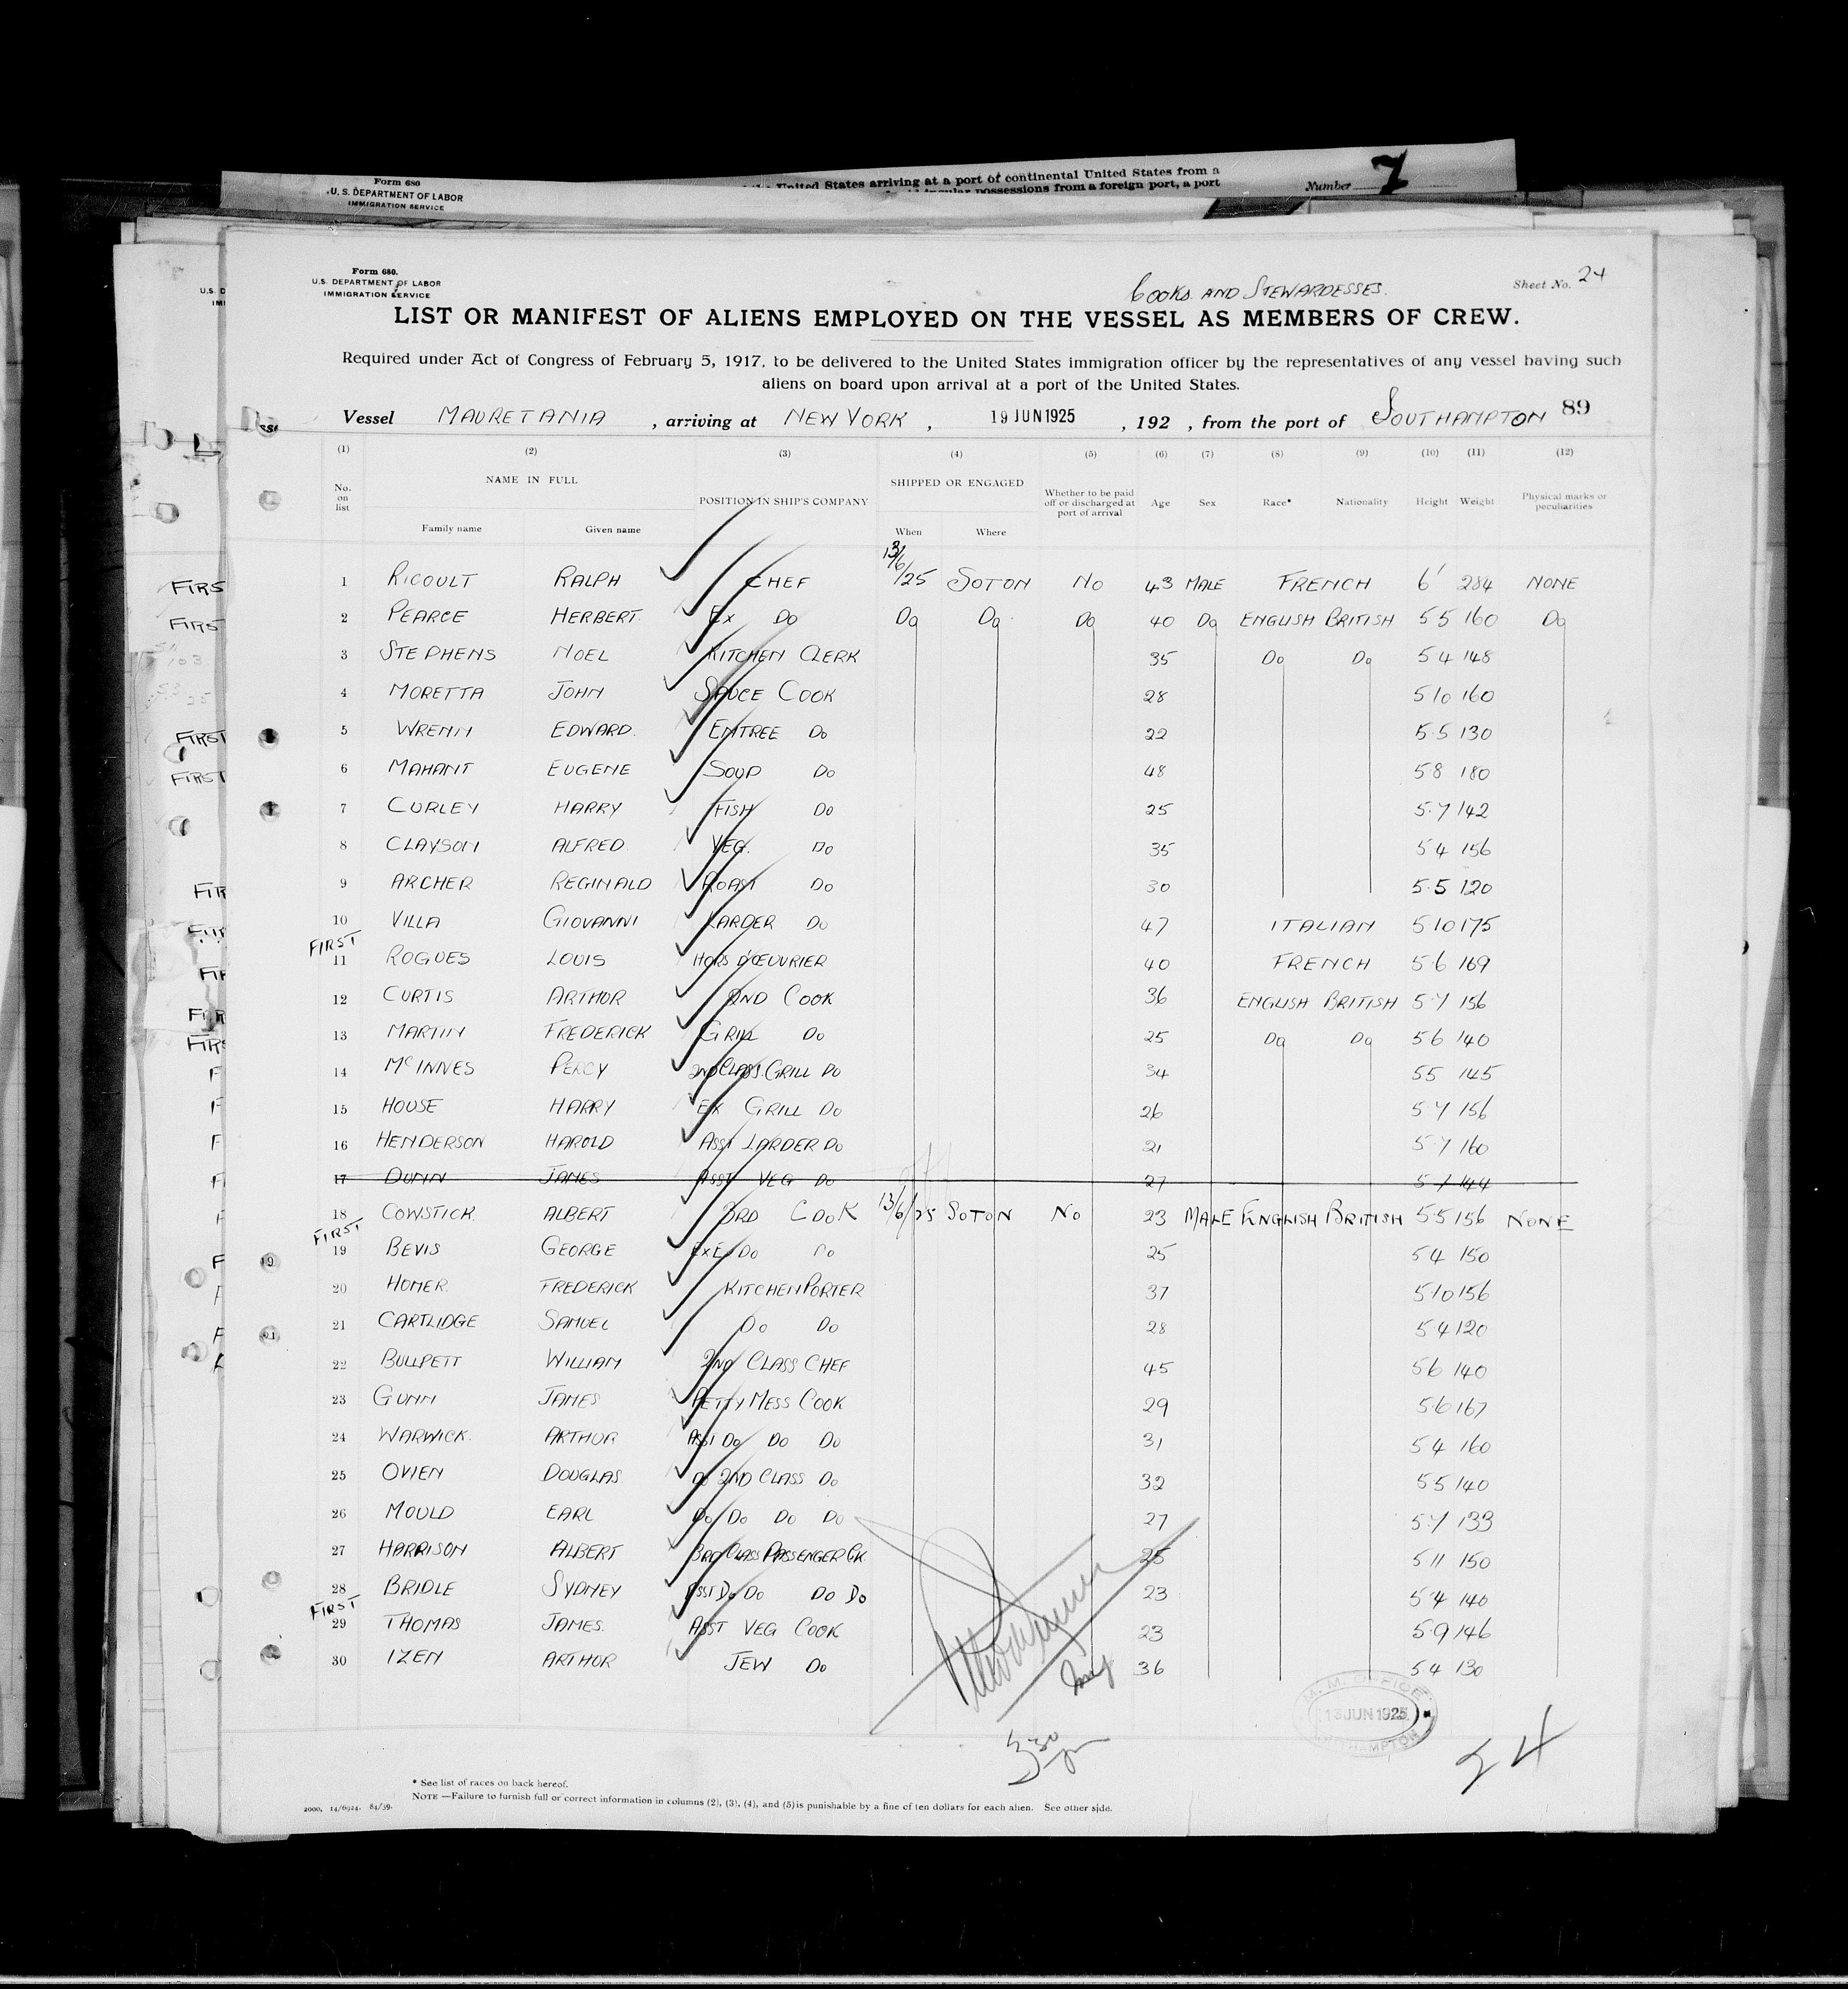 Form 680
U. S. DEPARTMENT OF LABOR
IMMIGRATION SERVICE
United States arriving at a port of continental United States from a
possessions from a foreign port, a port
Number 7
Form 680.
U.S. DEPARTMENT OF LABOR
IMMIGRATION SERVICE
COOKS AND STEWARDESSES.
Sheet No. 24
LIST OR MANIFEST OF ALIENS EMPLOYED ON THE VESSEL AS MEMBERS OF CREW.
Required under Act of Congress of February 5, 1917, to be delivered to the United States immigration officer by the representatives of any vessel having such
aliens on board upon arrival at a port of the United States.
Vessel MAURETANIA, arriving at NEW YORK, 19 JUN 1925, 192 , from the port of SOUTHAMPTON 89
(1) (2) (3) (4) (5) (6) (7) (8) (9) (10) (11) (12)
No. on list NAME IN FULL Family name Given name POSITION IN SHIP'S COMPANY SHIPPED OR ENGAGED When Where Whether to be paid off or discharged at port of arrival Age Sex Race* Nationality Height Weight Physical marks or peculiarities
1 RICOULT RALPH CHEF 13/6/25 SOTON NO 43 MALE FRENCH 6' 284 NONE
2 PEARCE HERBERT. EX DO DO DO DO 40 DO ENGLISH BRITISH 5 5 160 DO
3 STEPHENS NOEL KITCHEN CLERK 35 DO DO 5 4 148
4 MORETTA JOHN SAUCE COOK 28 5 10 160
5 WRENN EDWARD. ENTREE DO 22 5.5 130
6 MAHANT EUGENE SOUP DO 48 5 8 180
7 CURLEY HARRY FISH DO 25 5.7 142
8 CLAYSON ALFRED. VEG. DO 35 5 4 156
9 ARCHER REGINALD ROAST DO 30 5.5 120
10 VILLA GIOVANNI LARDER DO 47 ITALIAN 5 10 175
FIRST
11 ROGUES LOUIS HORS D'OEUVRIER 40 FRENCH 5.6 169
12 CURTIS ARTHUR 2ND COOK 36 ENGLISH BRITISH 5.7 156
13 MARTIN FREDERICK GRILL DO 25 DO DO 5 6 140
14 McINNES PERCY 2ND CLASS. GRILL DO 34 5 5 145
15 HOUSE HARRY EX GRILL DO 26 5 7 156
16 HENDERSON HAROLD ASST LARDER DO 21 5 7 160
17 DUNN JAMES ASST VEG DO 27 5 7 144
18 COWSTICK ALBERT 3RD COOK 13/6/25 SOTON NO 23 MALE ENGLISH BRITISH 5 5 156 NONE
FIRST
19 BEVIS GEORGE EXE DO DO 25 5 4 150
20 HOMER. FREDERICK KITCHEN PORTER 37 5 10 156
21 CARTLIDGE SAMUEL DO DO 28 5 4 120
22 BULLPETT WILLIAM 2ND CLASS CHEF 45 5 6 140
23 GUNN JAMES PETTY MESS COOK 29 5 6 167
24 WARWICK. ARTHUR ASST DO DO DO 31 5 4 160
25 OVIEN DOUGLAS. DO 2ND CLASS DO 32 5 5 140
26 MOULD EARL DO DO DO DO 27 5.7 133
27 HARRISON ALBERT 3RD CLASS PASSENGER CK. 25 5 11 150
28 BRIDLE SYDNEY ASST DO DO DO DO 23 5 4 140
FIRST
29 THOMAS JAMES. ASST VEG COOK 23 5.9 146
30 IZEN ARTHUR JEW DO 36 5 4 130
M. M. OFFICE
13 JUN 1925
SOUTHAMPTON
24
* See list of races on back hereof.
NOTE —Failure to furnish full or correct information in columns (2), (3), (4), and (5) is punishable by a fine of ten dollars for each alien. See other side.
2000. 14/6924. 84/39.